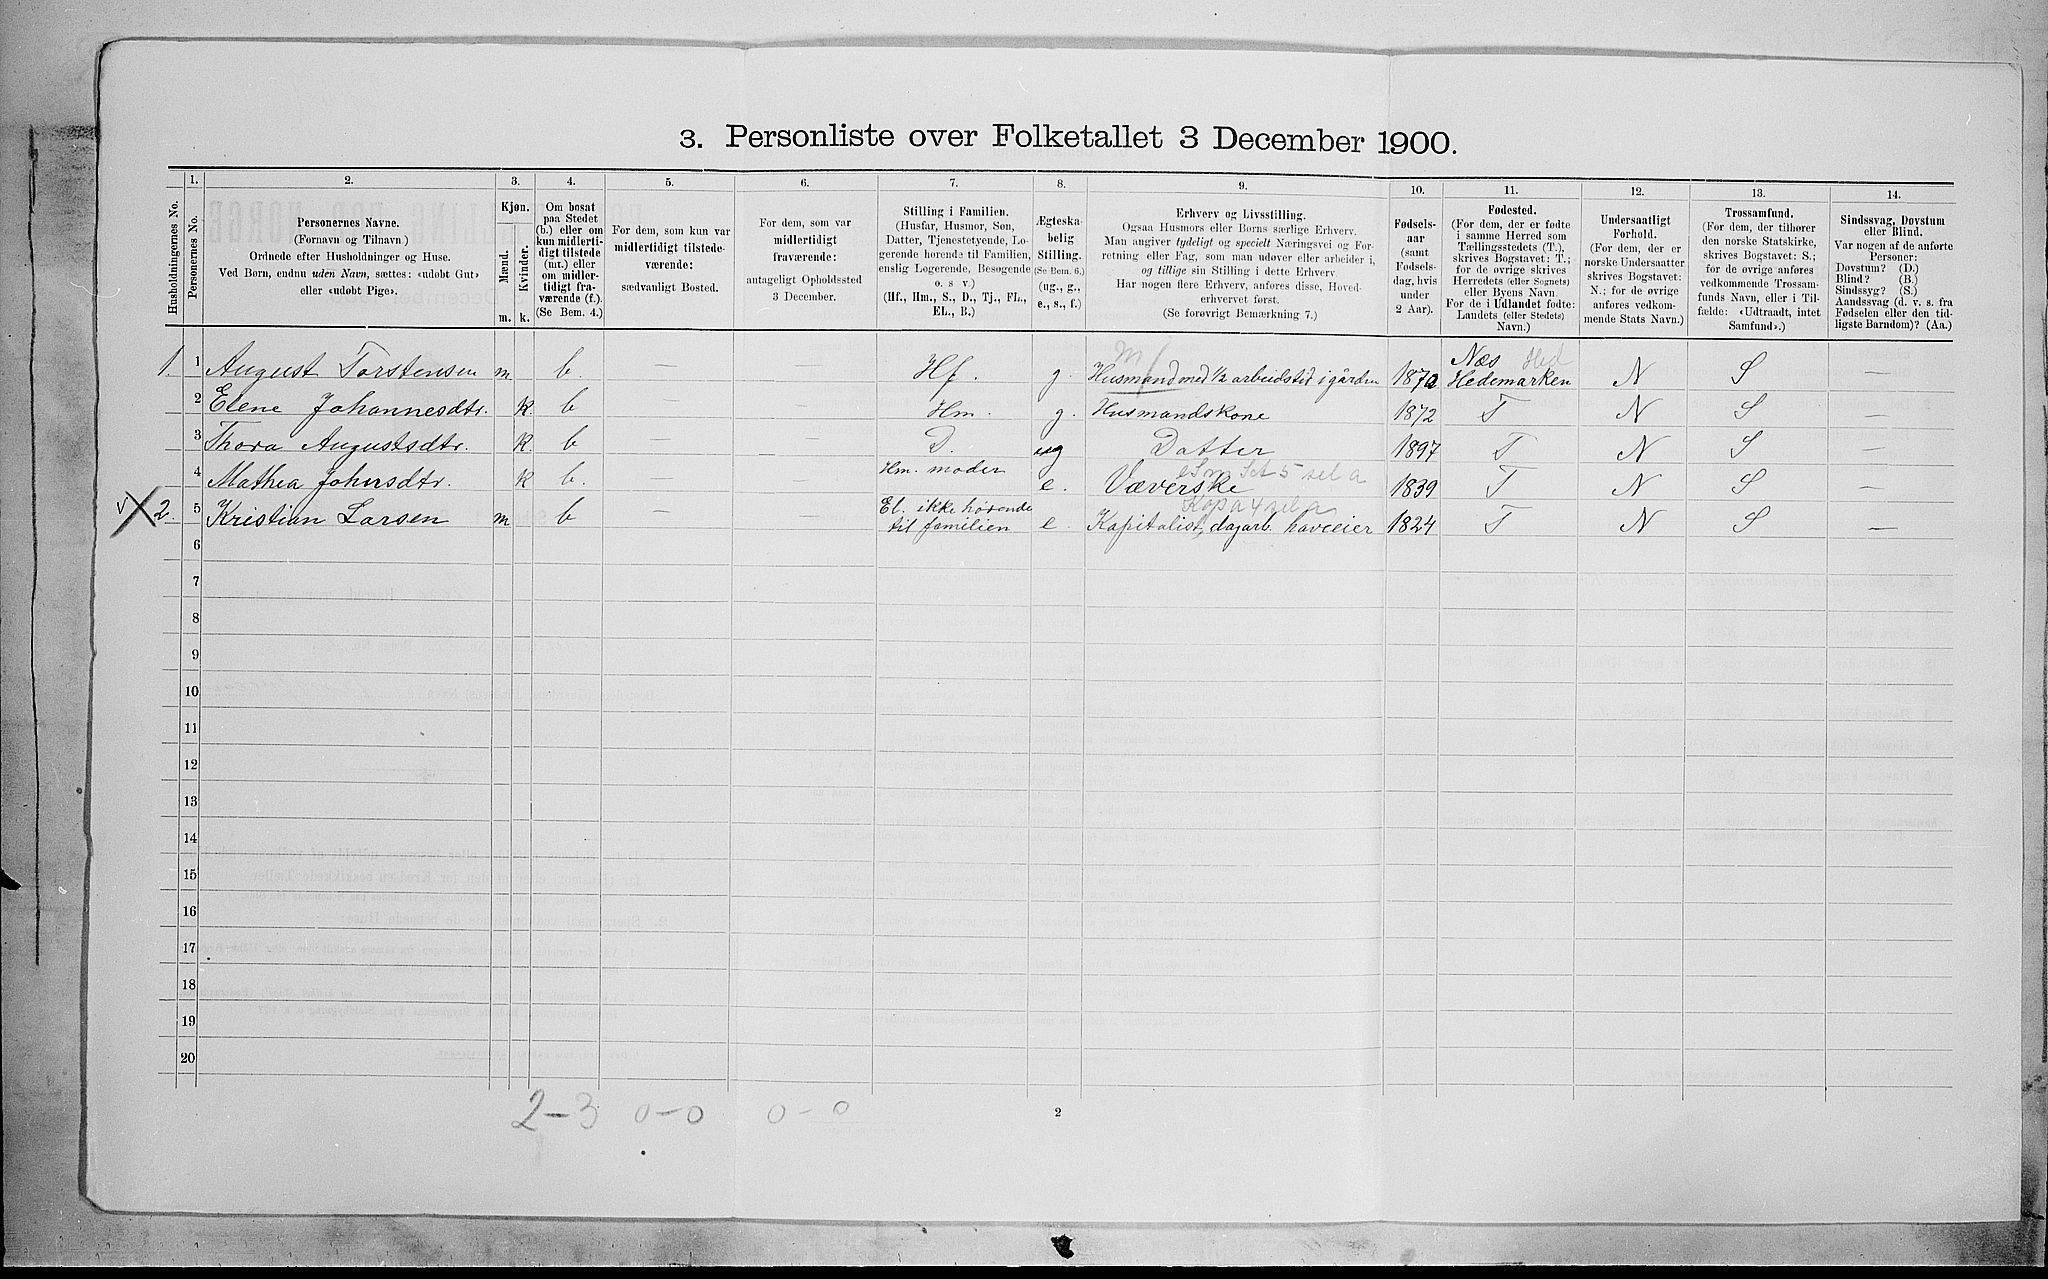 3. Personliste over Folketallet 3 December 1900.
1. 2. 3. 4. 5. 6. 7. 8. 9. 10. 11. 12. 13. 14.
Husholdningernes No.
Personernes No.
Personernes Navne.
(Fornavn og Tilnavn)
Ordnede efter Husholdninger og Huse.
Ved Børn, endnu uden Navn, sættes: «udøbt Gut»
eller «udøbt Pige».
Kjøn.
Mænd.
Kvinder.
m. k.
Om bosat
paa Stedet
(b.) eller om
kun midlerti-
digt tilstede
(mt.) eller
om midler-
tidigt fra-
værende (f.).
(Se Bem. 4.)
For dem, som kun var
midlertidigt tilstede-
værende:
sædvanligt Bosted.
For dem, som var
midlertidigt
fraværende:
antageligt Opholdssted
3 December.
Stilling i Familien.
(Husfar, Husmor, Søn,
Datter, Tjenestetyende, Lo-
gerende hørende til Familien,
enslig Logerende, Besøgende
o. s. v.)
(Hf., Hm., S., D., Tj., FL.,
EL., B.)
Ægteska-
belig
Stilling.
(Se Bem. 6.)
(ug., g.,
e., s., f.)
Erhverv og Livsstilling.
Ogsaa Husmors eller Børns særlige Erhverv.
Man angiver tydeligt og specielt Næringsvei og For-
retning eller Fag, som man udøver eller arbeider i,
og tillige sin Stilling i dette Erhverv.
Har nogen flere Erhverv, anføres disse, Hoved-
erhvervet først.
(Se forøvrigt Bemærkning 7.)
Fødsels-
aar
(samt
Fødsels-
dag, hvis
under
2 Aar).
Fødested.
(For dem, der er fødte
i samme Herred som
Tællingsstedets (T.),
skrives Bogstavet: T.;
for de øvrige skrives
Herredets (eller Sognets)
eller Byens Navn.
For de i Udlandet fødte:
Landets (eller Stedets)
Navn.)
Undersaatligt
Forhold.
(For dem, der er
norske Undersaatter
skrives Bogstavet:
N.; for de øvrige
anføres vedkom-
mende Stats Navn.)
Trossamfund.
(For dem, der tilhører
den norske Statskirke,
skrives Bogstavet: S.;
for de øvrige anføres
vedkommende Trossam-
funds Navn, eller i Til-
fælde: «Udtraadt, intet
Samfund».)
Sindssvag, Døvstum
eller Blind.
Var nogen af de anførte
Personer:
Døvstum? (D.)
Blind? (B.)
Sindssyg? (S.)
Aandssvag (d. v. s. fra
Fødselen eller den tid-
ligste Barndom)? (Aa.)
1. 1 August Torstensen m b. — — Hf. g. Husmand med 1/2 arbeidstid i gården 1870 Næs Hed Hedemarken N S —
2 Elene Johannesdtr. k. b — — Hm. g. Husmandskone 1872 T N S —
3 Thora Augustsdtr. k. b — — D. ug Datter 1897 T N S —
4 Mathea Johnsdtr. k b. — — Hm. moder e. Væverske 1839 T N S —
2. 5 Kristian Larsen m b — — El. ikke hørende til familien e. Kapitalist, dagarb. haveeier 1824 T N S —
6
7
8
9
10
11
12
13
14
15
16
17
18
19
20
2-3 0-0 0-0
2